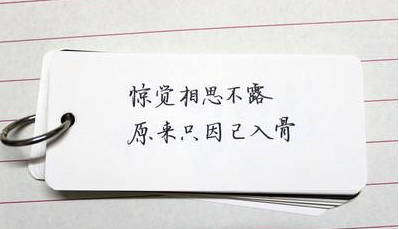 惊觉相思不露
原来只因已入骨